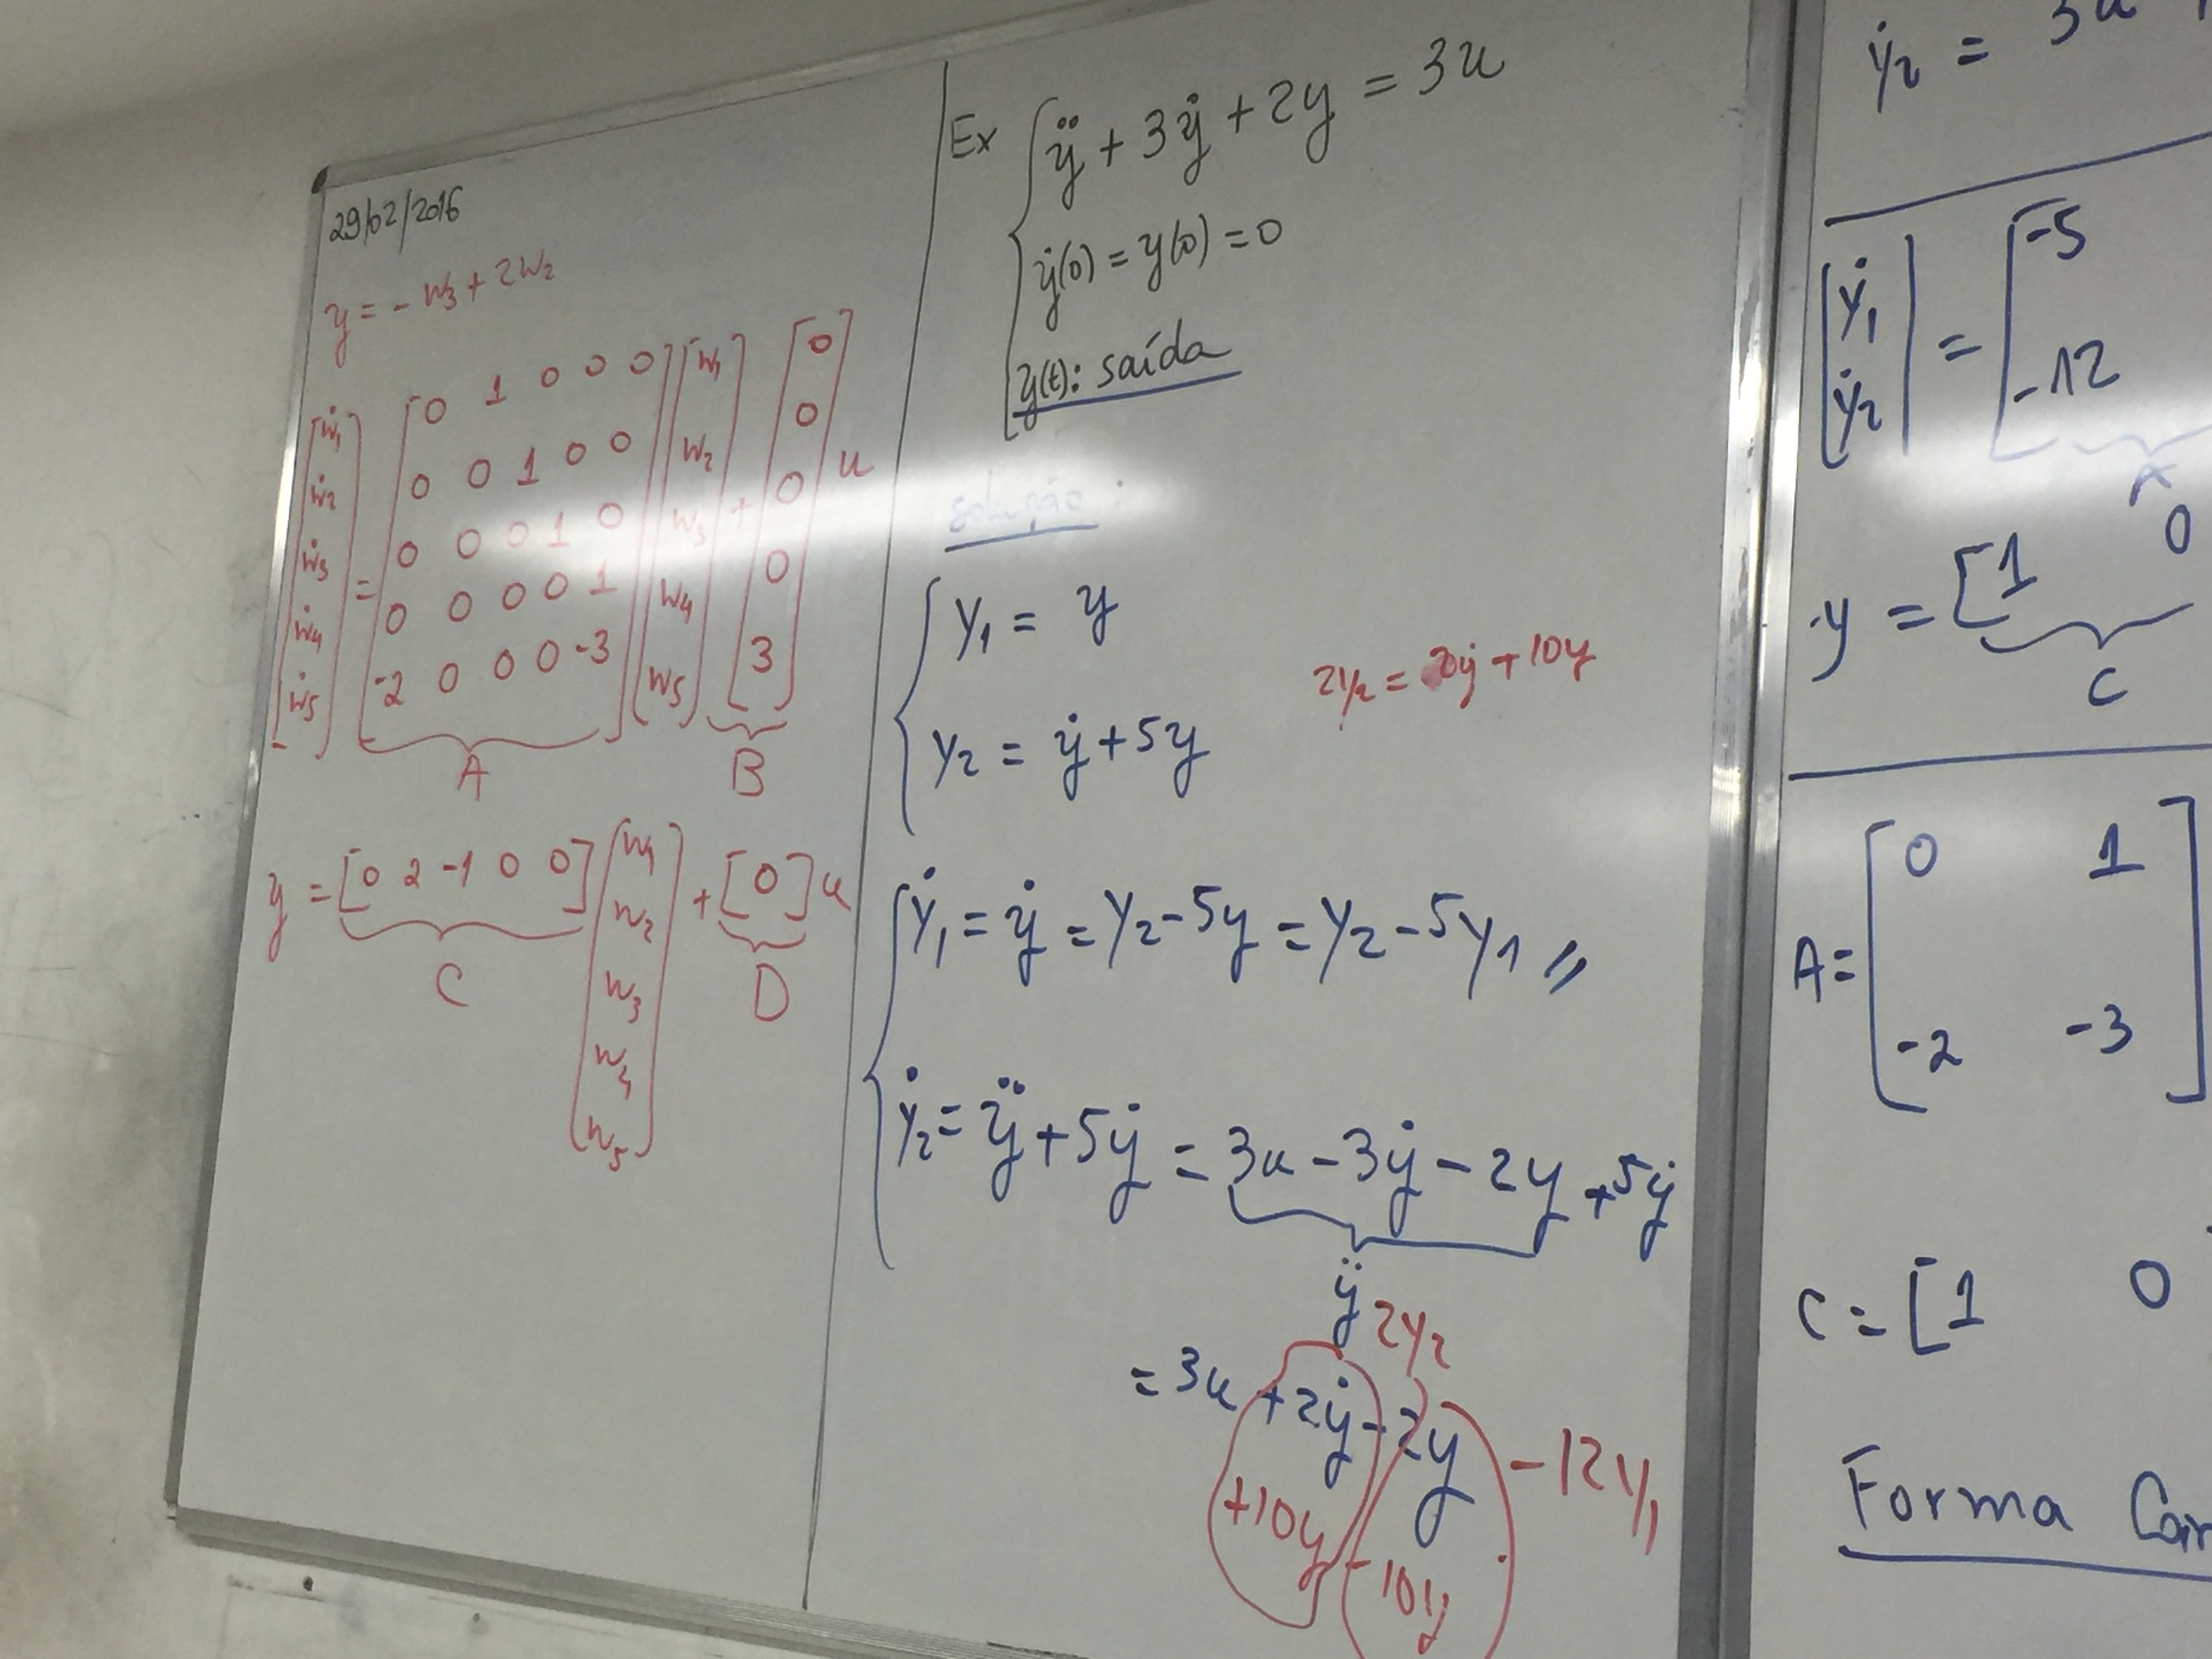 29/02/2016
y = - w3 + 2w2
[ẇ1 ẇ2 ẇ3 ẇ4 ẇ5] = [0 1 0 0 0
0 0 1 0 0
0 0 0 1 0
0 0 0 0 1
-2 0 0 0 -3] [w1 w2 w3 w4 w5] + [0 0 0 0 3] u
A B
y = [0 2 -1 0 0] [w1 w2 w3 w4 w5] + [0] u
C D
Ex { ÿ + 3ẏ + 2y = 3u
ẏ(0) = y(0) = 0
y(t): saída
solução:
y1 = y
2y2 = 2ẏ + 10y
y2 = ẏ + 5y
ẏ1 = ẏ = y2 - 5y = y2 - 5y1 //
ẏ2 = ÿ + 5ẏ = 3u - 3ẏ - 2y + 5ẏ
ÿ
2y2
= 3u + 2ẏ - 2y - 12y1
+10y -10y
ẏ2 = 3u
[ẏ1 ẏ2] = [-5
-12
A
y = [1 0
C
A = [0 1
-2 -3]
C = [1 0
Forma